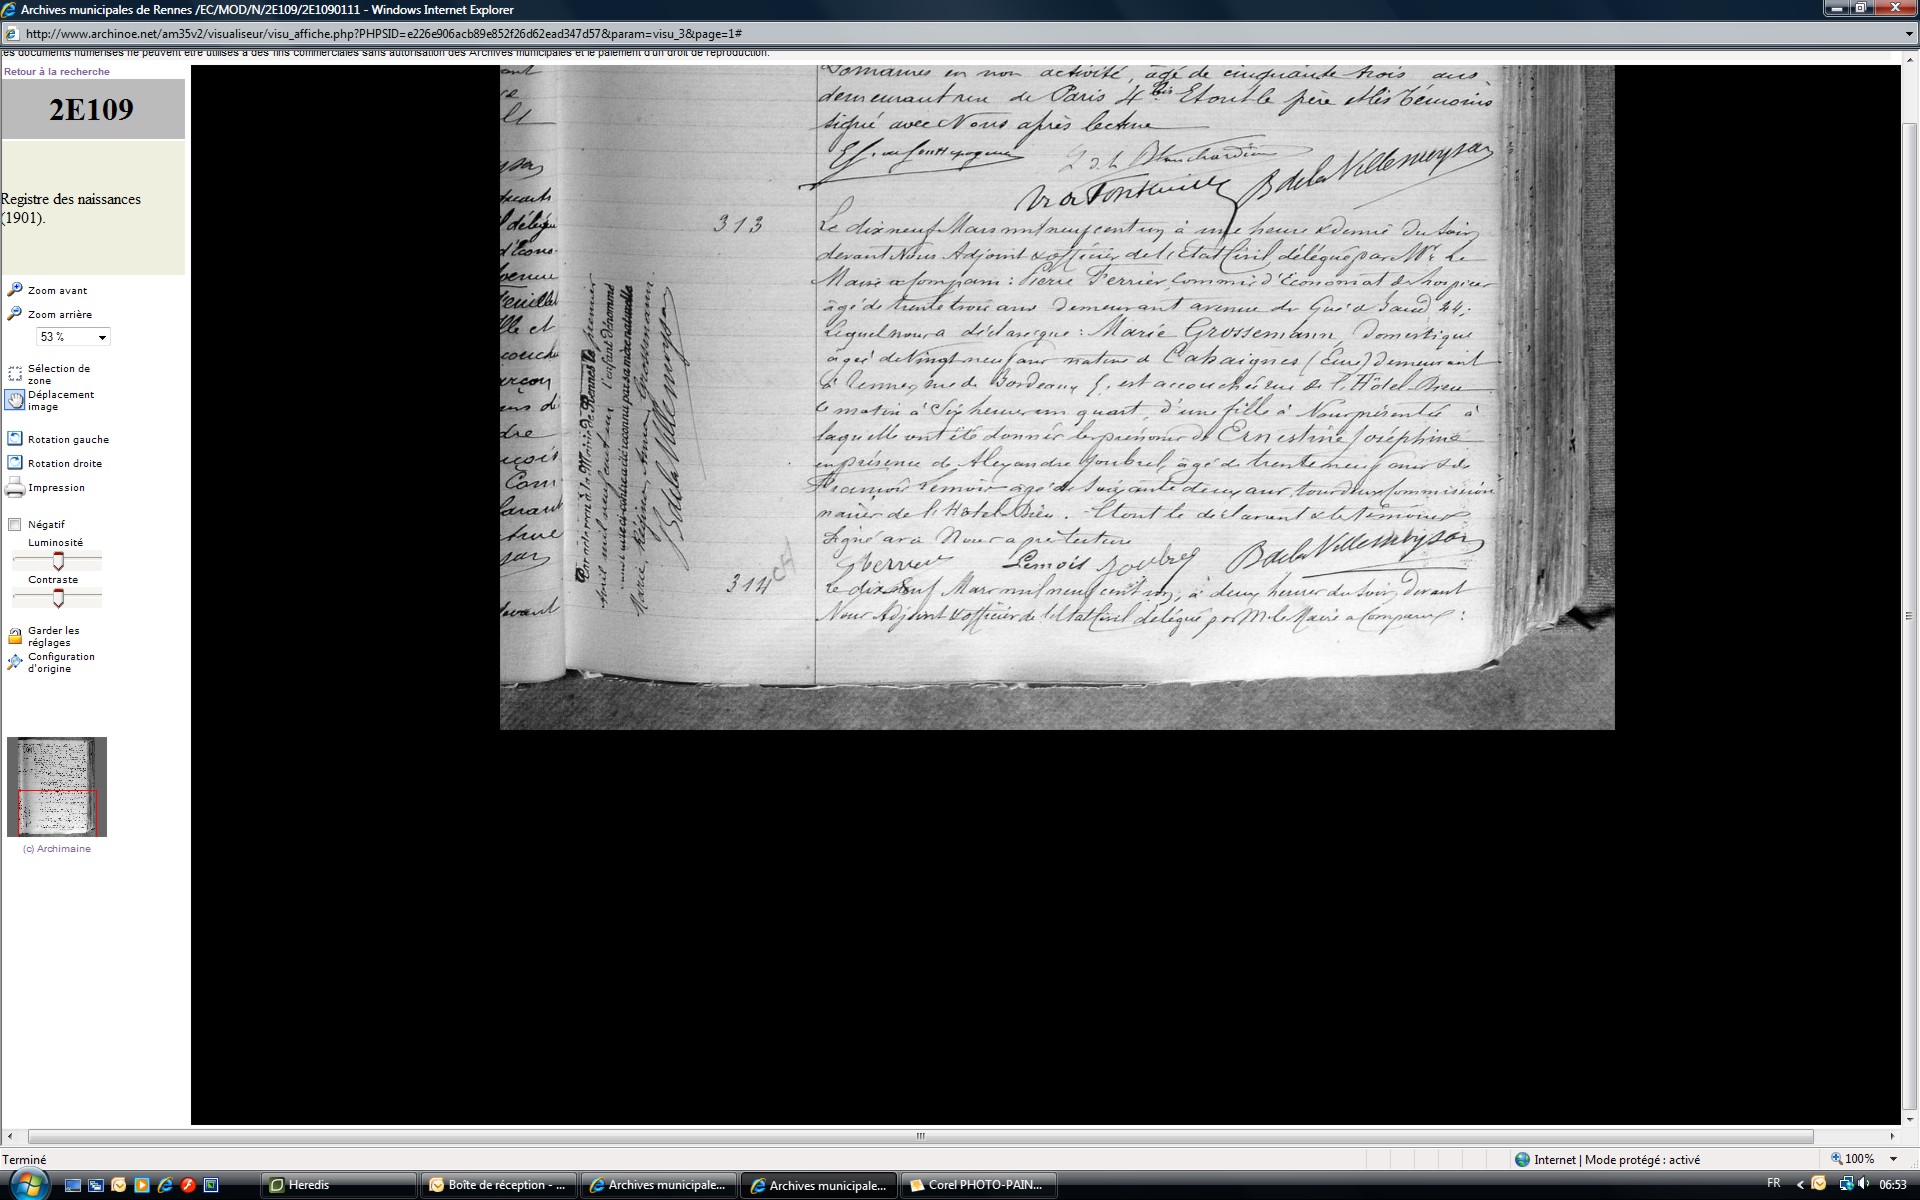 Archives municipales de Rennes /EC/MOD/N/2E109/2E1090111 - Windows Internet Explorer
http://www.archinoe.net/am35v2/visualiseur/visu_affiche.php?PHPSID=e226e906acb89e852f26d62ead347d57&param=visu_3&page=1#
les documents numérisés ne peuvent être utilisés à des fins commerciales sans autorisation des Archives municipales et le paiement d'un droit de reproduction.
Retour à la recherche
2E109
Registre des naissances
(1901).
Zoom avant
Zoom arrière
53 %
Sélection de
zone
Déplacement
image
Rotation gauche
Rotation droite
Impression
Négatif
Luminosité
Contraste
Garder les
réglages
Configuration
d'origine
(c) Archimaine
Domaines en non activité, âgé de cinquante trois ans,
demeurant rue de Paris 4 bis Et ont le père et les témoins
signé avec Nous après lecture
B de la Villemeysan
313
Le dix neuf Mars mil neuf cent un, à une heure & demie du soir,
devant Nous Adjoint & officier de l'Etat Civil, délégué par Mr. Le
Maire a comparu : Pierre Ferrier, Commis d'Economat des hospices
âgé de trente trois ans demeurant avenue du Gué de Baud 44;
Lequel nous a déclaré que : Marie Grossemann, Domestique
âgée de Vingt neuf ans native de Cahaignes (Eure) demeurant
à Rennes, rue de Bordeaux 5, est accouchée rue de l'Hôtel-Dieu
ce matin à Six heures un quart, d'une fille à Nous présentée à
laquelle ont été donnés les prénoms de Ernestine Joséphine
en présence de Alexandre Joubrel, âgé de trente neuf ans & de
François Lemois âgé de Soixante deux ans, tous deux Commission
naires de l'Hôtel-Dieu. Et ont le déclarant & les témoins
Signé avec Nous après lecture
Lemois Joubrel B de la Villemeysan
Par acte reçu à la Mairie de Rennes le premier
Avril mil neuf cent un l'enfant dénommé
Marie, Grossmann
B de la Villemeysan
314
Le dix neuf Mars mil neuf cent un, à deux heures du soir, devant
Nous Adjoint & officier de l'Etat Civil délégué par M. le Maire a Comparu :
Terminé
Internet | Mode protégé : activé
100%
Heredis
Boîte de réception - ...
Archives municipale...
Archives municipale...
Corel PHOTO-PAIN...
FR
06:53